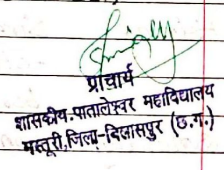 प्राचार्य
शासकीय.पातालेश्वर महाविद्यालय
मस्तूरी,जिला-बिलासपुर (छ.ग.)